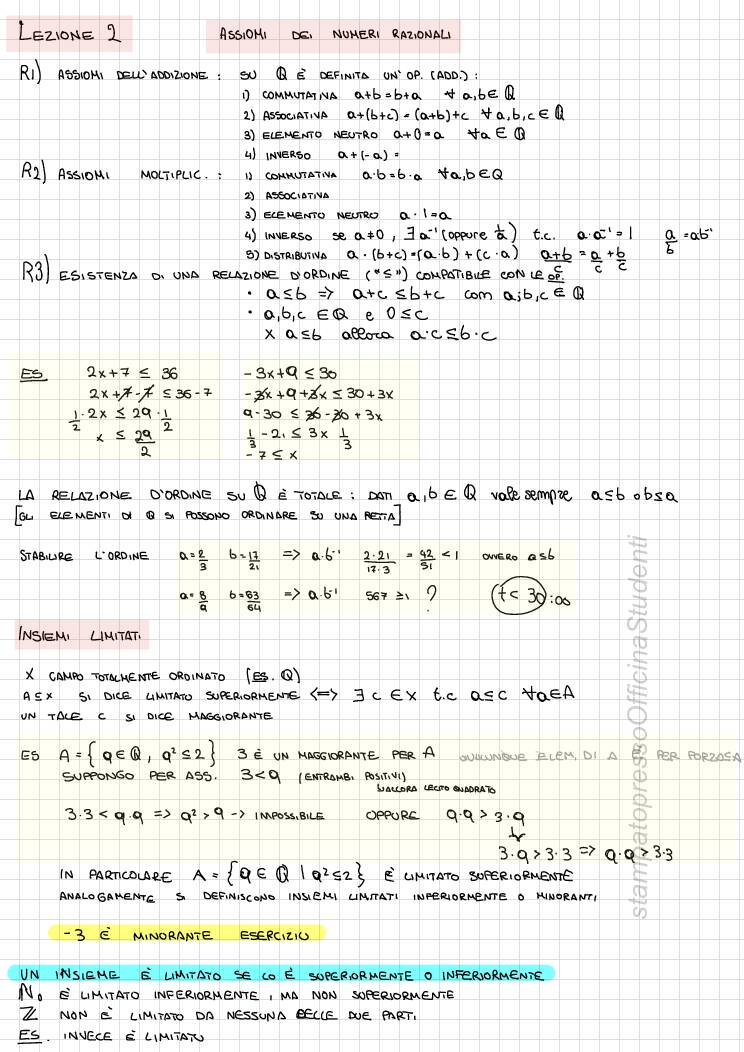 LEZIONE 2 ASSIOMI DEI NUMERI RAZIONALI
R1) ASSIOMI DELL'ADDIZIONE : SU ℚ È DEFINITA UN' OP. (ADD.) :
1) COMMUTATIVA a+b=b+a ∀ a,b∈ ℚ
2) ASSOCIATIVA a+(b+c) = (a+b)+c ∀ a,b,c ∈ ℚ
3) ELEMENTO NEUTRO a+0=a ∀a ∈ ℚ
4) INVERSO a+(-a) =
R2) ASSIOMI MOLTIPLIC. : 1) COMMUTATIVA a·b=b·a ∀a,b∈Q
2) ASSOCIATIVA
3) ELEMENTO NEUTRO a·1=a
4) INVERSO se a≠0 , ∃ a⁻¹ (oppure 1/a) t.c. a·a⁻¹=1 a/b =ab⁻¹
5) DISTRIBUTIVA a·(b+c)=(a·b)+(c·a) (a+b)/c = a/c + b/c
R3) ESISTENZA DI UNA RELAZIONE D'ORDINE ("≤") COMPATIBILE CON LE OP.
• a≤b => a+c ≤b+c com a,b,c ∈ ℚ
• a,b,c ∈ℚ e 0≤c
x a≤b allora a·c≤b·c
ES. 2x+7 ≤ 36 -3x+9 ≤ 30
2x+7-7 ≤ 36-7 -3x+9+3x ≤ 30+3x
1/2 · 2x ≤ 29 · 1/2 9-30 ≤ 30-30+3x
x ≤ 29/2 1/3 -21 ≤ 3x 1/3
-7 ≤ x
LA RELAZIONE D'ORDINE SU ℚ È TOTALE : DATI a,b ∈ ℚ vale sempre a≤b o b≤a
[GLI ELEMENTI DI Q SI POSSONO ORDINARE SU UNA RETTA]
STABILIRE L'ORDINE a=2/3 b=17/21 => a·b⁻¹ 2·21/17·3 = 42/51 <1 OVVERO a≤b
a=8/9 b=63/64 => a·b⁻¹ 567 ≥1 ? (t< 30:00
INSIEMI LIMITATI
X CAMPO TOTALMENTE ORDINATO (ES. Q)
A⊆X SI DICE LIMITATO SUPERIORMENTE <=> ∃ c ∈ X t.c a≤c ∀a∈A
UN TALE C SI DICE MAGGIORANTE
ES A={q∈ℚ, q²≤2} 3 È UN MAGGIORANTE PER A QUALUNQUE ELEM, DI A È PER FORZA≤A
SUPPONGO PER ASS. 3<q (ENTRAMBI POSITIVI)
3·3 < q·q => q² > 9 -> IMPOSSIBILE OPPURE q·q > 3·q
3·q > 3·3 => q·q > 3·3
IN PARTICOLARE A={q∈ℚ | q²≤2} È LIMITATO SUPERIORMENTE
ANALOGAMENTE SI DEFINISCONO INSIEMI LIMITATI INFERIORMENTE O MINORANTI
-3 È MINORANTE ESERCIZIO
UN INSIEME È LIMITATO SE LO È SUPERIORMENTE O INFERIORMENTE
N₀ È LIMITATO INFERIORMENTE, MA NON SUPERIORMENTE
ℤ NON È LIMITATO DA NESSUNA DELLE DUE PARTI
ES. INVECE È LIMITATO
stampatopressoOfficinaStudenti